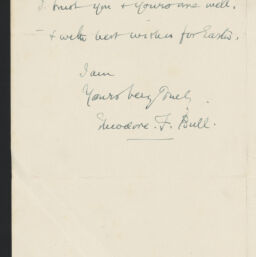 I trust you & yours are well.
- & with best wishes for Easter.
I am
Yours very truly.
Theodore. F. Bull.